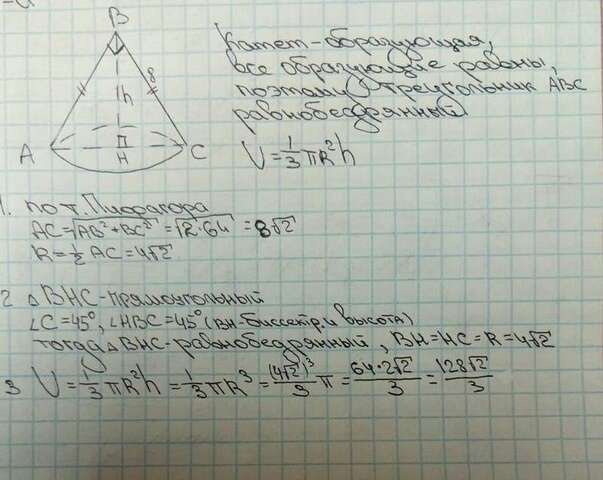 B
8
h
A
H
C
Катет-образующая,
все образующие равны,
поэтому треугольник ABC
равнобедрянный
V=1/3 πR²h
1. по т. Пифагора
AC=√AB²+BC²=√2·64=8√2
R=1/2 AC=4√2
2 △BHC-прямоугольный
∠C=45°, ∠HBC=45° (BH-биссектр. и высота)
тогда △BHC-равнобедрянный, BH=HC=R=4√2
3 V=1/3 πR²h=1/3 πR³=(4√2)³/3 π=64·2√2/3=128√2/3